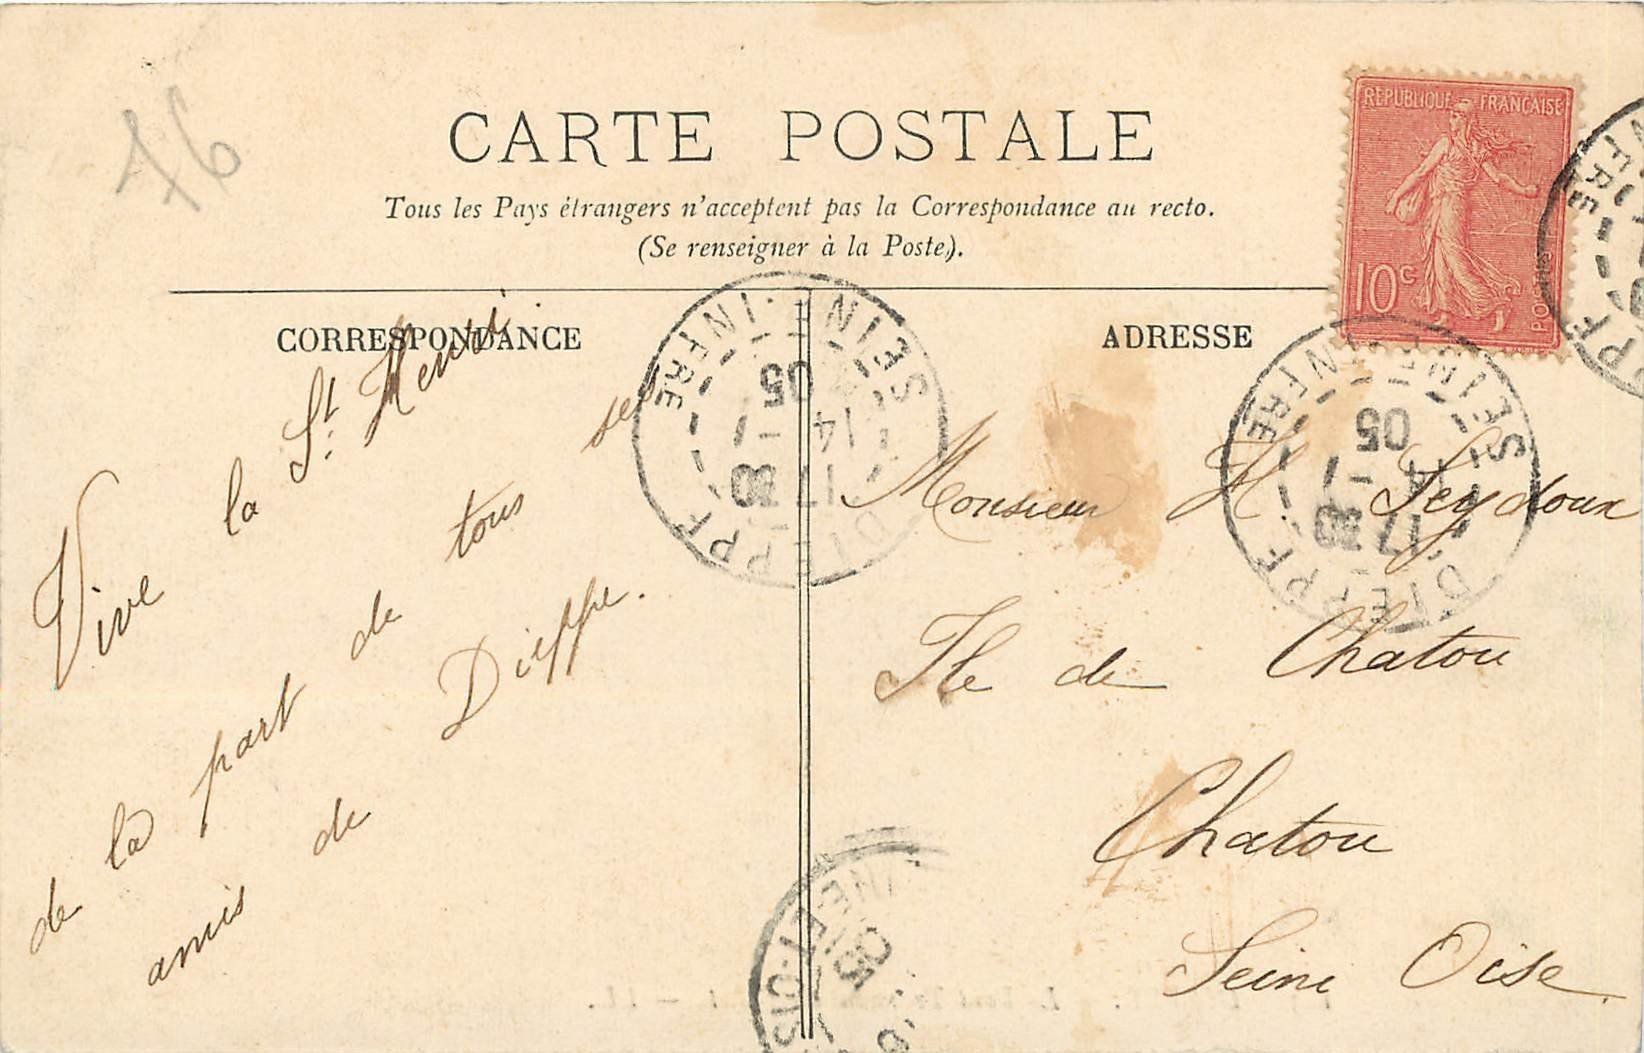 76
CARTE POSTALE
Tous les Pays étrangers n'acceptent pas la Correspondance au recto.
(Se renseigner à la Poste).
REPUBLIQUE FRANÇAISE
10c
POSTES
CORRESPONDANCE
Vive la St. Henri
de la part de tous ses
amis de Dieppe.
ADRESSE
Monsieur H. Seydoux
Ile de Chatou
Chatou
Seine Oise
DIEPPE
SEINE-INFRE
17 30
14 -7
05
DIEPPE
SEINE-INFRE
17 30
14 -7
05
NE-ET-OIS
05